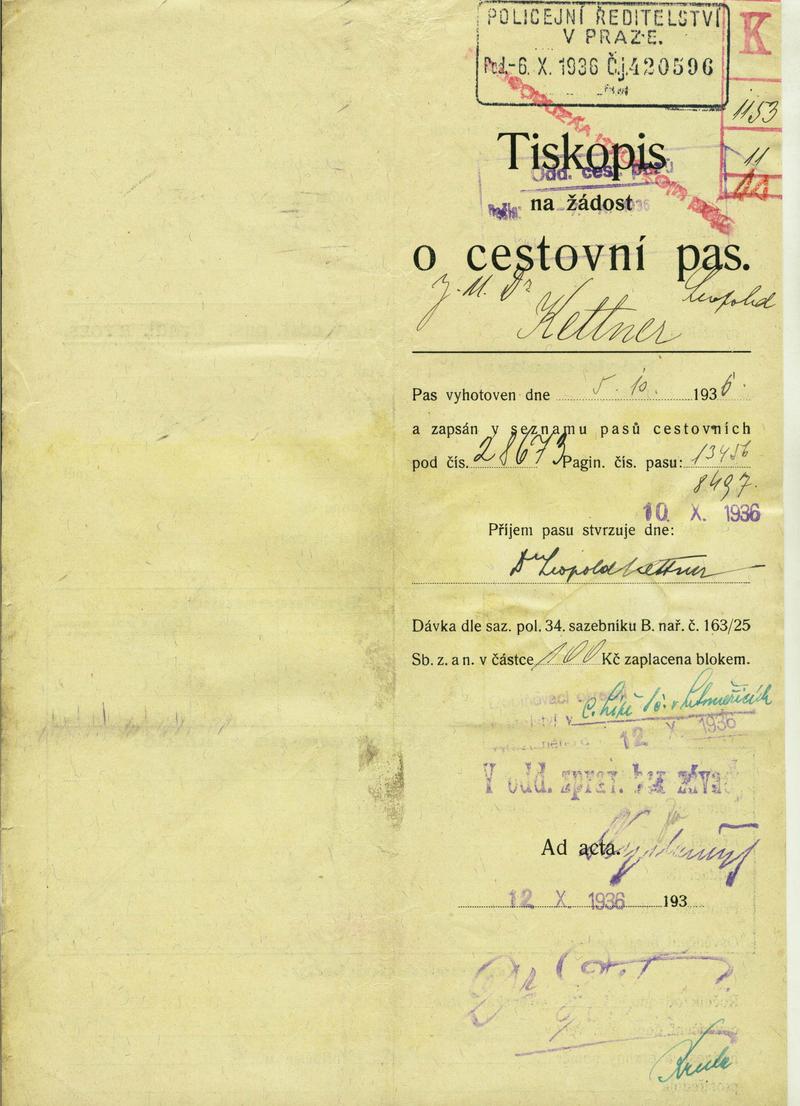 POLICEJNÍ ŘEDITELSTVÍ
V PRAZE.
Pod. -6. X. 1936 Č.j. 420596
K
1153
11
Tiskopis
Odd. cest. pasů
na žádost
o cestovní pas.
J. U. Dr Leopold
Kettner
Pas vyhotoven dne 5. 10. 1936.
a zapsán v seznamu pasů cestovních
pod čís. 28673 Pagin. čís. pasu: 13456
8497.
10. X. 1936
Příjem pasu stvrzuje dne:
Dr Leopold Kettner
Dávka dle saz. pol. 34. sazebníku B. nař. č. 163/25
Sb. z. a n. v částce 100 Kč zaplacena blokem.
C. Lípě v Litoměřicích
12 X. 1936
V odd. zprav. bez závad
Ad acta.
12 X. 1936 193
Dr